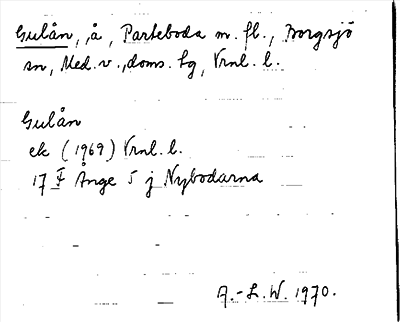 Gulån, å, Parteboda m. fl., Borgsjö
sn, Med. v., doms. tg, Vrnl. l.
Gulån
ek (1969) Vrnl. l.
17 F Ånge 5 j Nybodarna
A.-L. W. 1970.